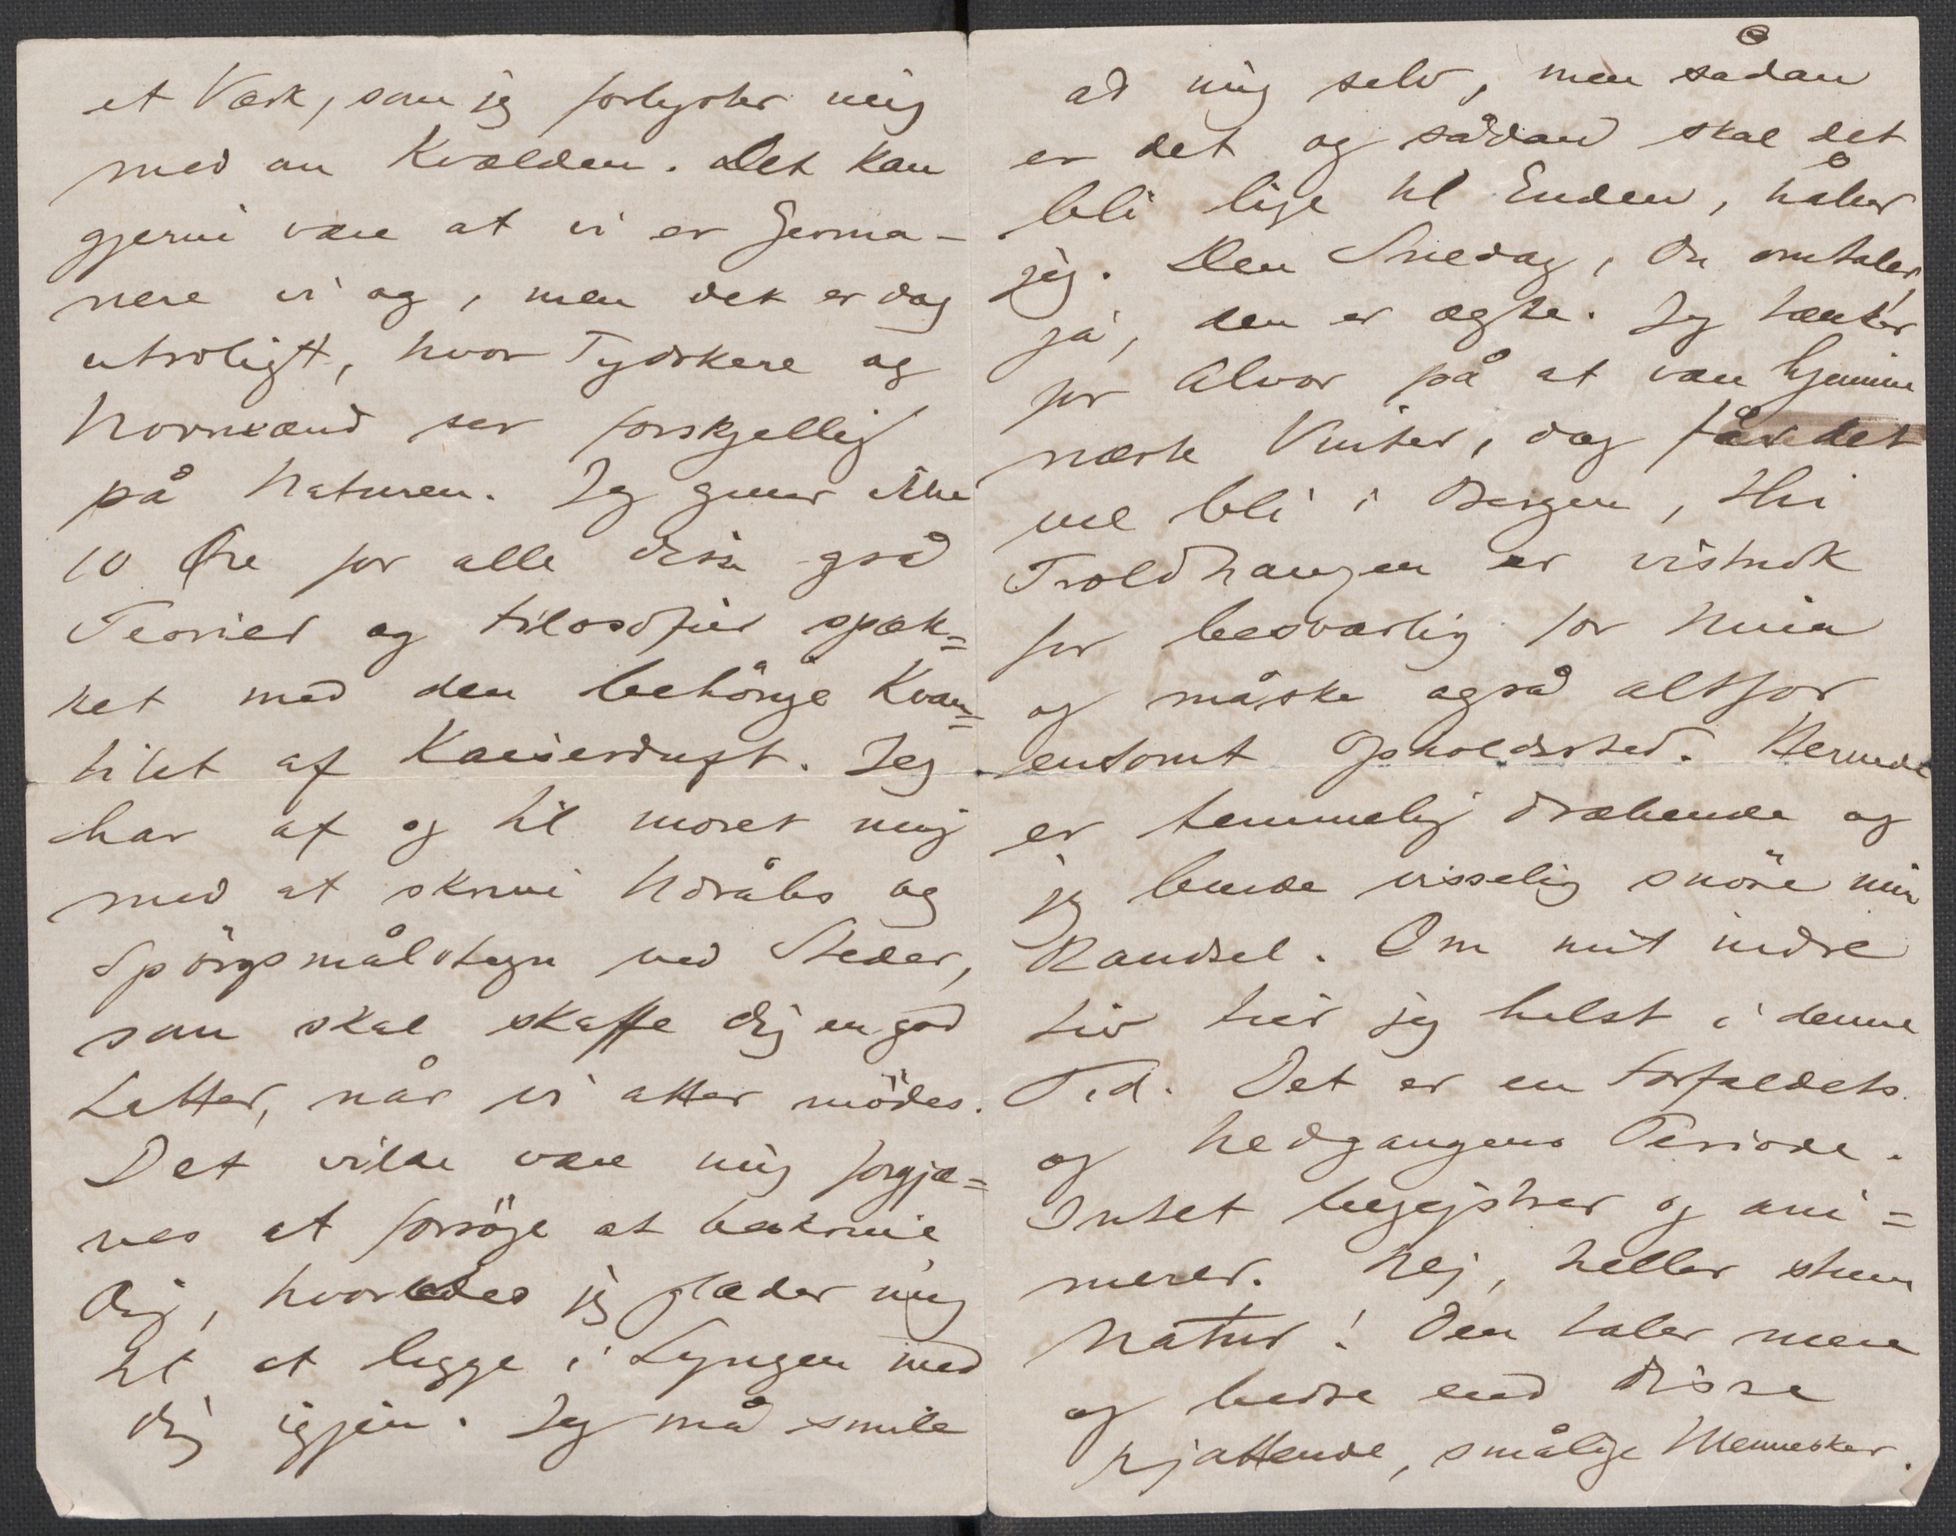 et Værk, som jeg forlyster mig
med om Kvælden. Det kan
gjerne være at vi er Germa-
nere vi og, men det er dog
utroligt, hvor Tydskere og
Nordmænd ser forskjellig
på Naturen. Jeg giver ikke
10 Øre for alle disse grå
Teorier og Filosofier spæk=
ket med den behörige Kvan=
titet af Kaiserduft. Jeg
har af og til moret mig
med at skrive Udråbs og
Spörgsmålstegn ved Steder,
som skal skaffe dig en god
Latter, når vi atter mödes.
Det vilde være mig forgjæ=
ves at forsöge at beskrive
Dig, hvorledes jeg glæder mig
til at ligge i Lyngen med
dig igjen. Jeg må smile
ad mig selv, men sådan
er det og sådan skal det
bli lige til Enden, håber
jeg. Den Snedag, Du omtaler,
ja, den er ægte. Jeg tænker
for Alvor på at være hjemme
næste Vinter, dog får det
vel bli i Bergen, thi
Troldhaugen er vistnok
for besværlig for Nina
og måske også altfor
ensomt Opholdssted. Hernede
er temmelig dræbende og
jeg burde visselig snöre min
Randsel. Om mit indre
Liv tier jeg helst i denne
Tid. Det er en Forfaldets
og Nedgangens Periode.
Intet begejstrer og ani=
merer. Nej, heller stum
Natur! Den taler mere
og bedre end disse
pjattende, smålige Mennesker.